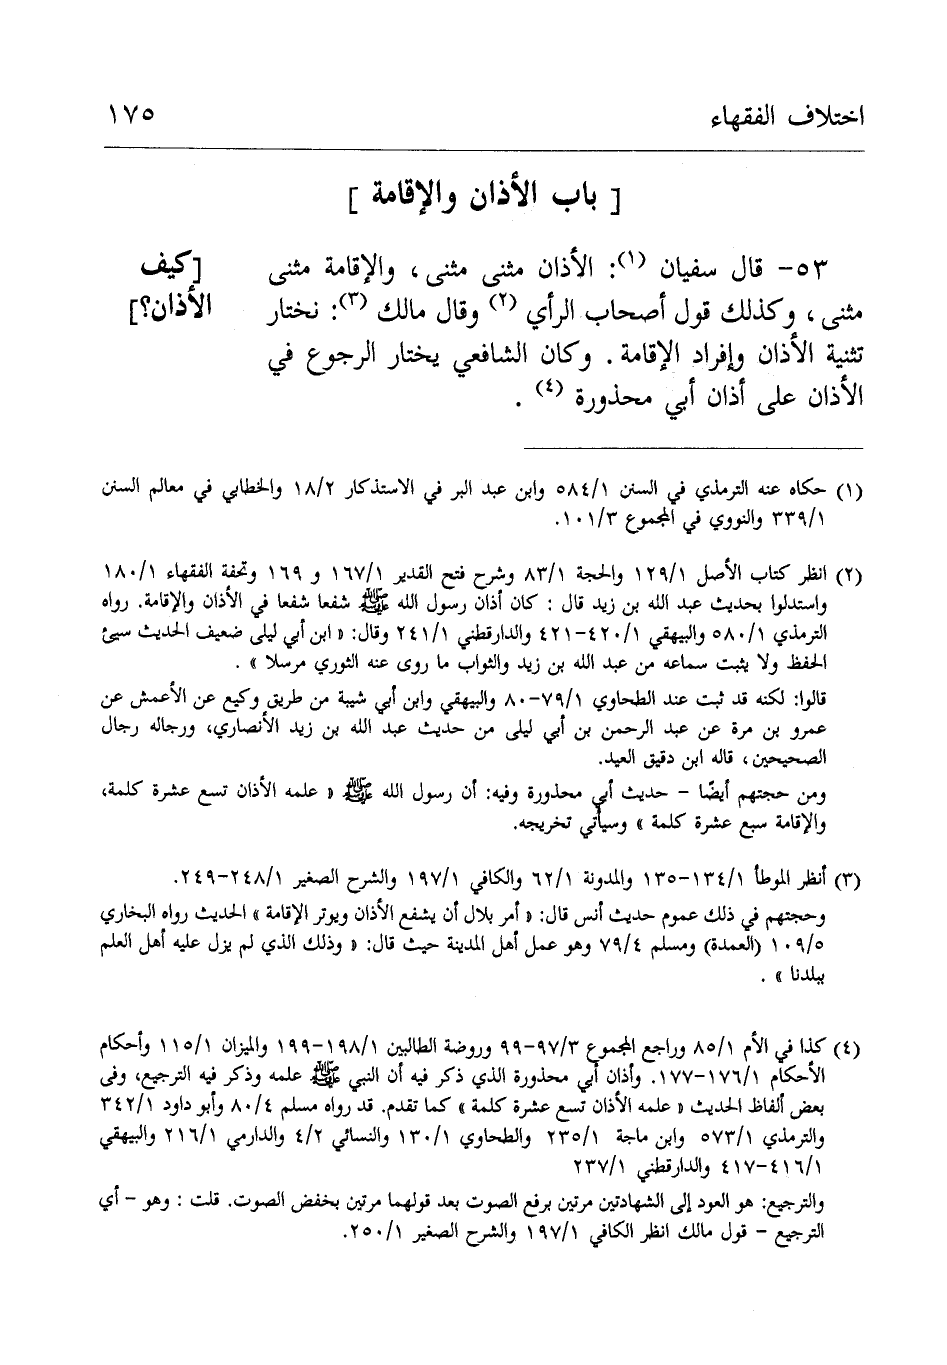 اختلاف الفقهاء ١٧٥
[ باب الأذان والإقامة ]
٥٣- قال سفيان (١): الأذان مثنى مثنى، والإقامة مثنى
[كيف
مثنى، وكذلك قول أصحاب الرأي (٢) وقال مالك (٣): نختار
الأذان؟]
تثنية الأذان وإفراد الإقامة. وكان الشافعي يختار الرجوع في
الأذان على أذان أبي محذورة (٤) .
(١) حكاه عنه الترمذي في السنن ٥٨٤/١ وابن عبد البر في الاستذكار ١٨/٢ والخطابي في معالم السنن
٣٣٩/١ والنووي في المجموع ١٠١/٣.
(٢) انظر كتاب الأصل ١٢٩/١ والحجة ٨٣/١ وشرح فتح القدير ١٦٧/١ و ١٦٩ وتحفة الفقهاء ١٨٠/١
واستدلوا بحديث عبد الله بن زيد قال : كان أذان رسول الله ﷺ شفعا شفعا في الأذان والإقامة. رواه
الترمذي ٥٨٠/١ والبيهقي ٤٢٠/١-٤٢١ والدارقطني ٢٤١/١ وقال: « ابن أبي ليلى ضعيف الحديث سيئ
الحفظ ولا يثبت سماعه من عبد الله بن زيد والثواب ما روى عنه الثوري مرسلا » .
قالوا: لكنه قد ثبت عند الطحاوي ٧٩/١-٨٠ والبيهقي وابن أبي شيبة من طريق وكيع عن الأعمش عن
عمرو بن مرة عن عبد الرحمن بن أبي ليلى من حديث عبد الله بن زيد الأنصاري، ورجاله رجال
الصحيحين، قاله ابن دقيق العيد.
ومن حجتهم أيضًا - حديث أبي محذورة وفيه: أن رسول الله ﷺ « علمه الأذان تسع عشرة كلمة،
والإقامة سبع عشرة كلمة » وسيأتي تخريجه.
(٣) أنظر الموطأ ١٣٤/١-١٣٥ والمدونة ٦٢/١ والكافي ١٩٧/١ والشرح الصغير ٢٤٨/١-٢٤٩.
وحجتهم في ذلك عموم حديث أنس قال: « أمر بلال أن يشفع الأذان ويوتر الإقامة » الحديث رواه البخاري
١٠٩/٥ (العمدة) ومسلم ٧٩/٤ وهو عمل أهل المدينة حيث قال: « وذلك الذي لم يزل عليه أهل العلم
ببلدنا » .
(٤) كذا في الأم ٨٥/١ وراجع المجموع ٩٧/٣-٩٩ وروضة الطالبين ١٩٨/١-١٩٩ والميزان ١١٥/١ وأحكام
الأحكام ١٧٦/١-١٧٧. وأذان أبي محذورة الذي ذكر فيه أن النبي ﷺ علمه وذكر فيه الترجيع، وفى
بعض ألفاظ الحديث « علمه الأذان تسع عشرة كلمة » كما تقدم. قد رواه مسلم ٨٠/٤ وأبو داود ٣٤٢/١
والترمذي ٥٧٣/١ وابن ماجة ٢٣٥/١ والطحاوي ١٣٠/١ والنسائي ٤/٢ والدارمي ٢١٦/١ والبيهقي
٤١٦/١-٤١٧ والدارقطني ٢٣٧/١
والترجيع: هو العود إلى الشهادتين مرتين برفع الصوت بعد قولهما مرتين بخفض الصوت. قلت : وهو - أي
الترجيع - قول مالك انظر الكافي ١٩٧/١ والشرح الصغير ٢٥٠/١.